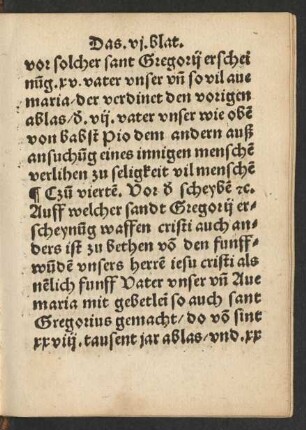 Das.vj.blat.
vor solcher sant Gregorij erschei
nūg.xv.vater vnser vn̄ so vil aue
maria/der verdinet den vorigen
ablas/d̄.vij.vater vnser wie obē
von babst Pio dem andern auß
ansuchūg eines innigen menschē
verlihen zu seligkeit vil menschē
¶ Czū viertē. Vor d̄ scheybē ⁊c.
Auff welcher sandt Gregorij er-
scheynūg waffen cristi auch an-
ders ist zu bethen vō den funff-
wūdē vnsers herrē iesu cristi als
nēlich funff Vater vnser vn̄ Aue
maria mit gebetlei so auch sant
Gregorius gemacht/do vō sint
xxviij.tausent jar ablas/vnd.xx